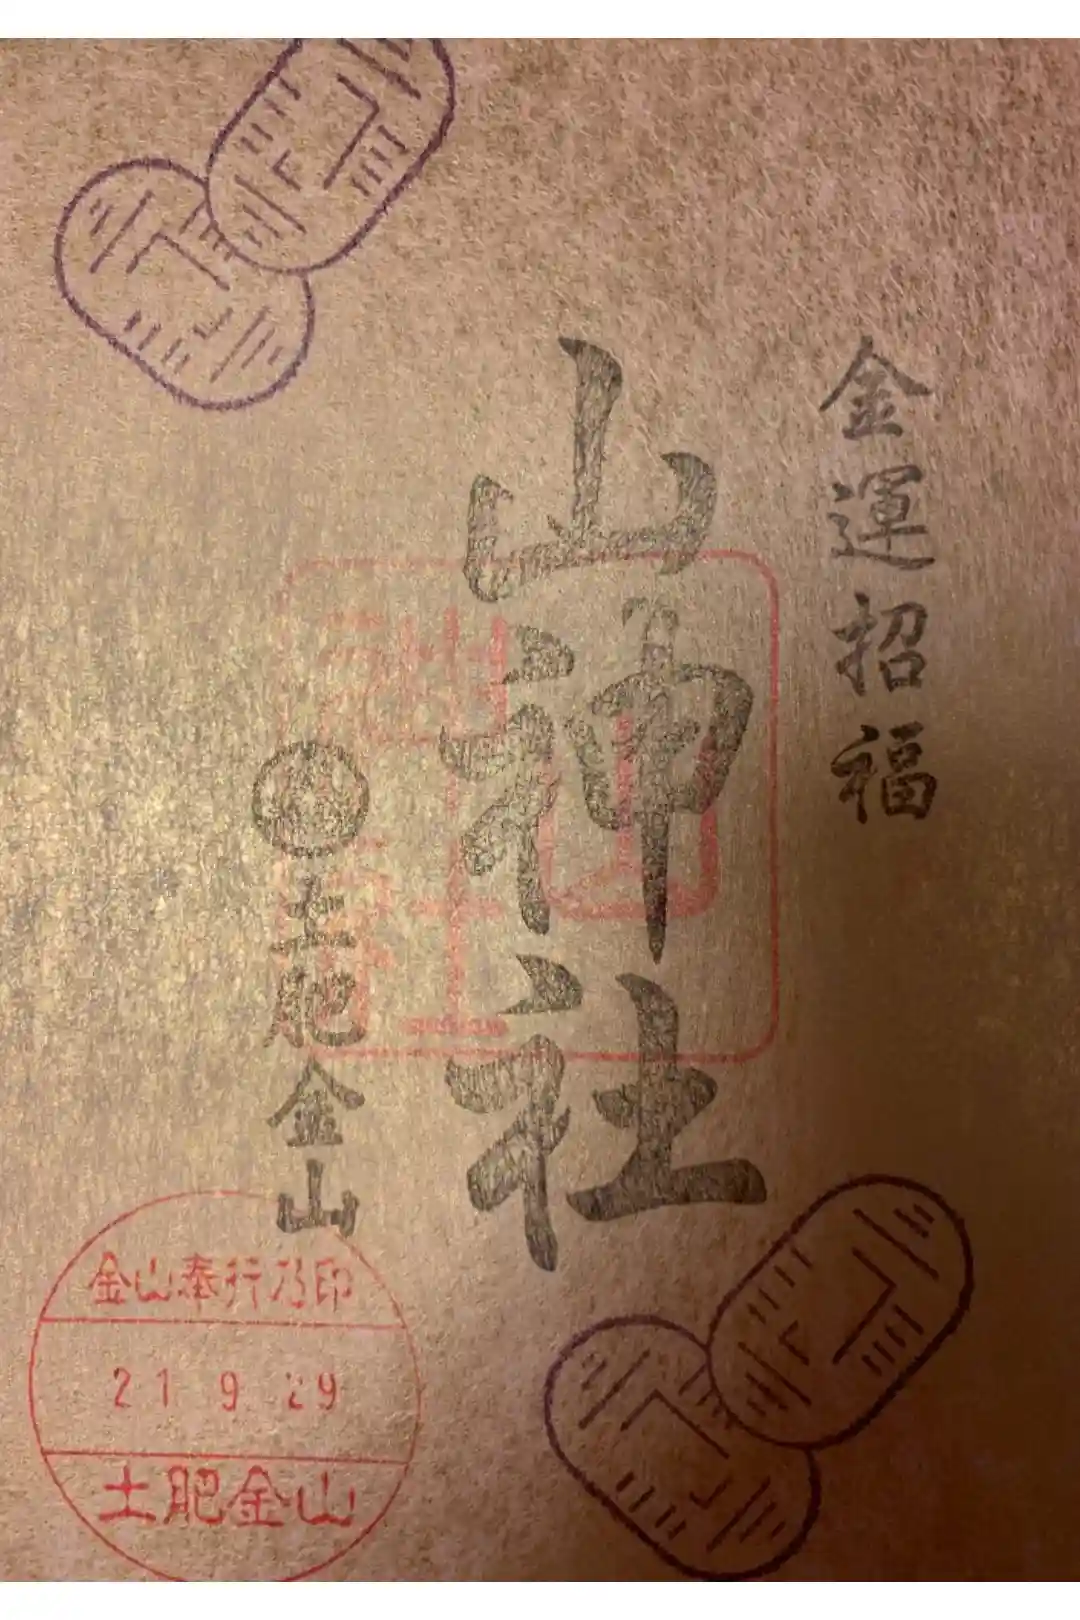 金運招福
山神社
土肥金山
金山奉行乃印
21 9 29
土肥金山